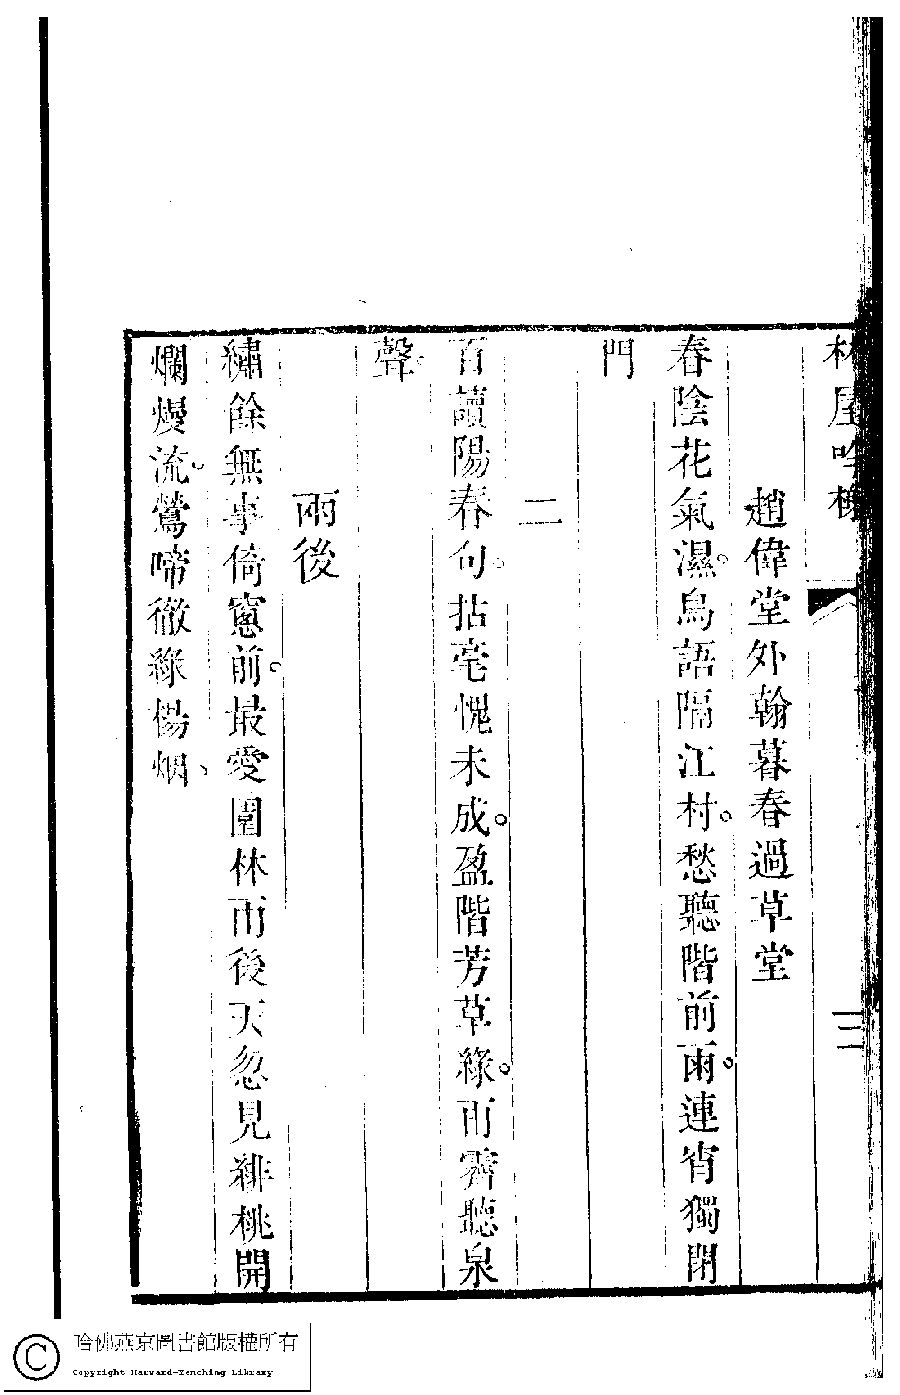 林屋吟榭
三
趙偉堂外翰暮春過草堂
春陰花氣濕鳥語隔江村愁聽階前雨連宵獨閉
門
二
百讀陽春句拈毫愧未成盈階芳草綠雨霽聽泉
聲
雨後
繡餘無事倚窻前最愛園林雨後天忽見緋桃開
爛熳流鶯啼徹綠楊烟
哈佛燕京圖書館版權所有
Copyright Harvard-Yenching Library